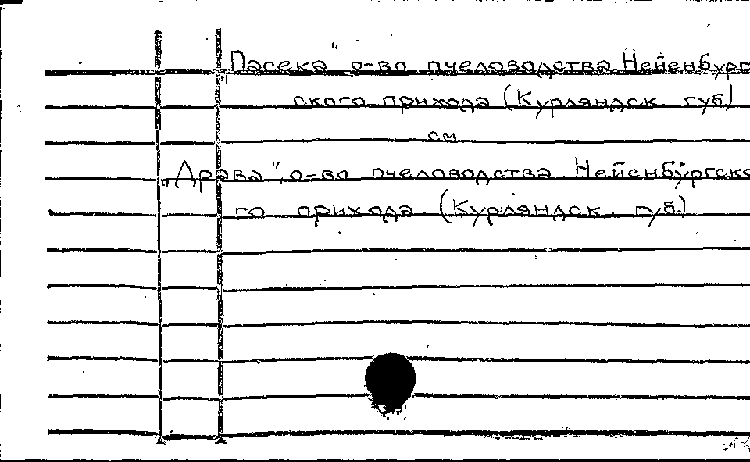 „Пасека" о-во пчеловодства Нейенбург
ского прихода (Курляндск. губ)
см.
„Драва", о-во пчеловодства Нейенбургско
го прихода (Курляндск. губ.)